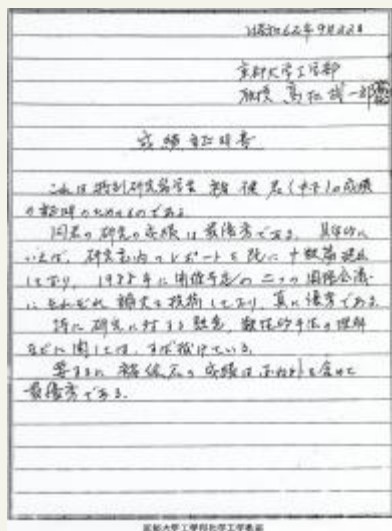 昭和62年9月22日
京都大学工学部
教授 高松武一郎
成績証明書
これは特別研究留学生 褚 健 君(中国)の成績
の証明のためのものである。
同君の研究の成績は最優秀である。具体的に
いえば、研究室内のレポートを既に十数篇提出
しており、1988年に開催予定の二つの国際会議
にそれぞれ論文を投稿しており、真に優秀である。
特に研究に対する熱意、数理的手法の理解
などに関しては、ずば抜けている。
要するに 褚健君の成績は を含めて
最優秀である。
京都大学工学部化学工学教室